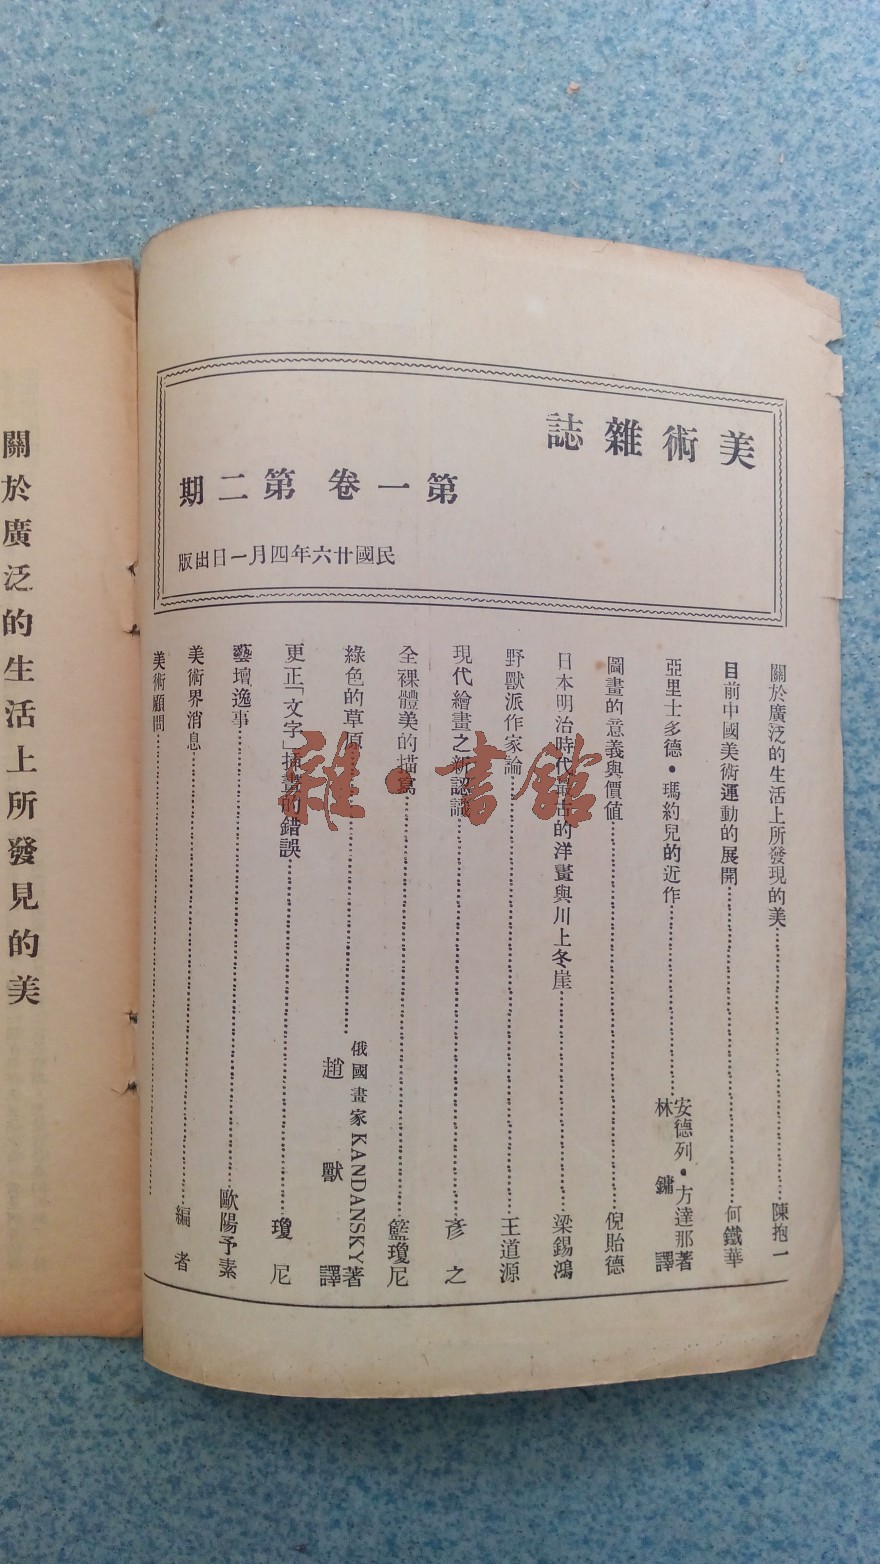 美術雜誌
第一卷 第二期
民國廿六年四月一日出版
關於廣泛的生活上所發現的美 陳抱一
目前中國美術運動的展開 何鐵華
亞里士多德•瑪約兒的近作 安德列•方達那著
林鏞譯
圖畫的意義與價值 倪貽德
日本明治時代最古的洋畫與川上冬崖 梁錫鴻
野獸派作家論 王道源
現代繪畫之新認識 彥之
全裸體美的描寫 籃瓊尼
綠色的草原 俄國畫家KANDANSKY著
趙獸譯
更正「文字」插畫的錯誤 瓊尼
藝壇逸事 歐陽予素
美術界消息 編者
美術顧問
關於廣泛的生活上所發見的美
雅•書館